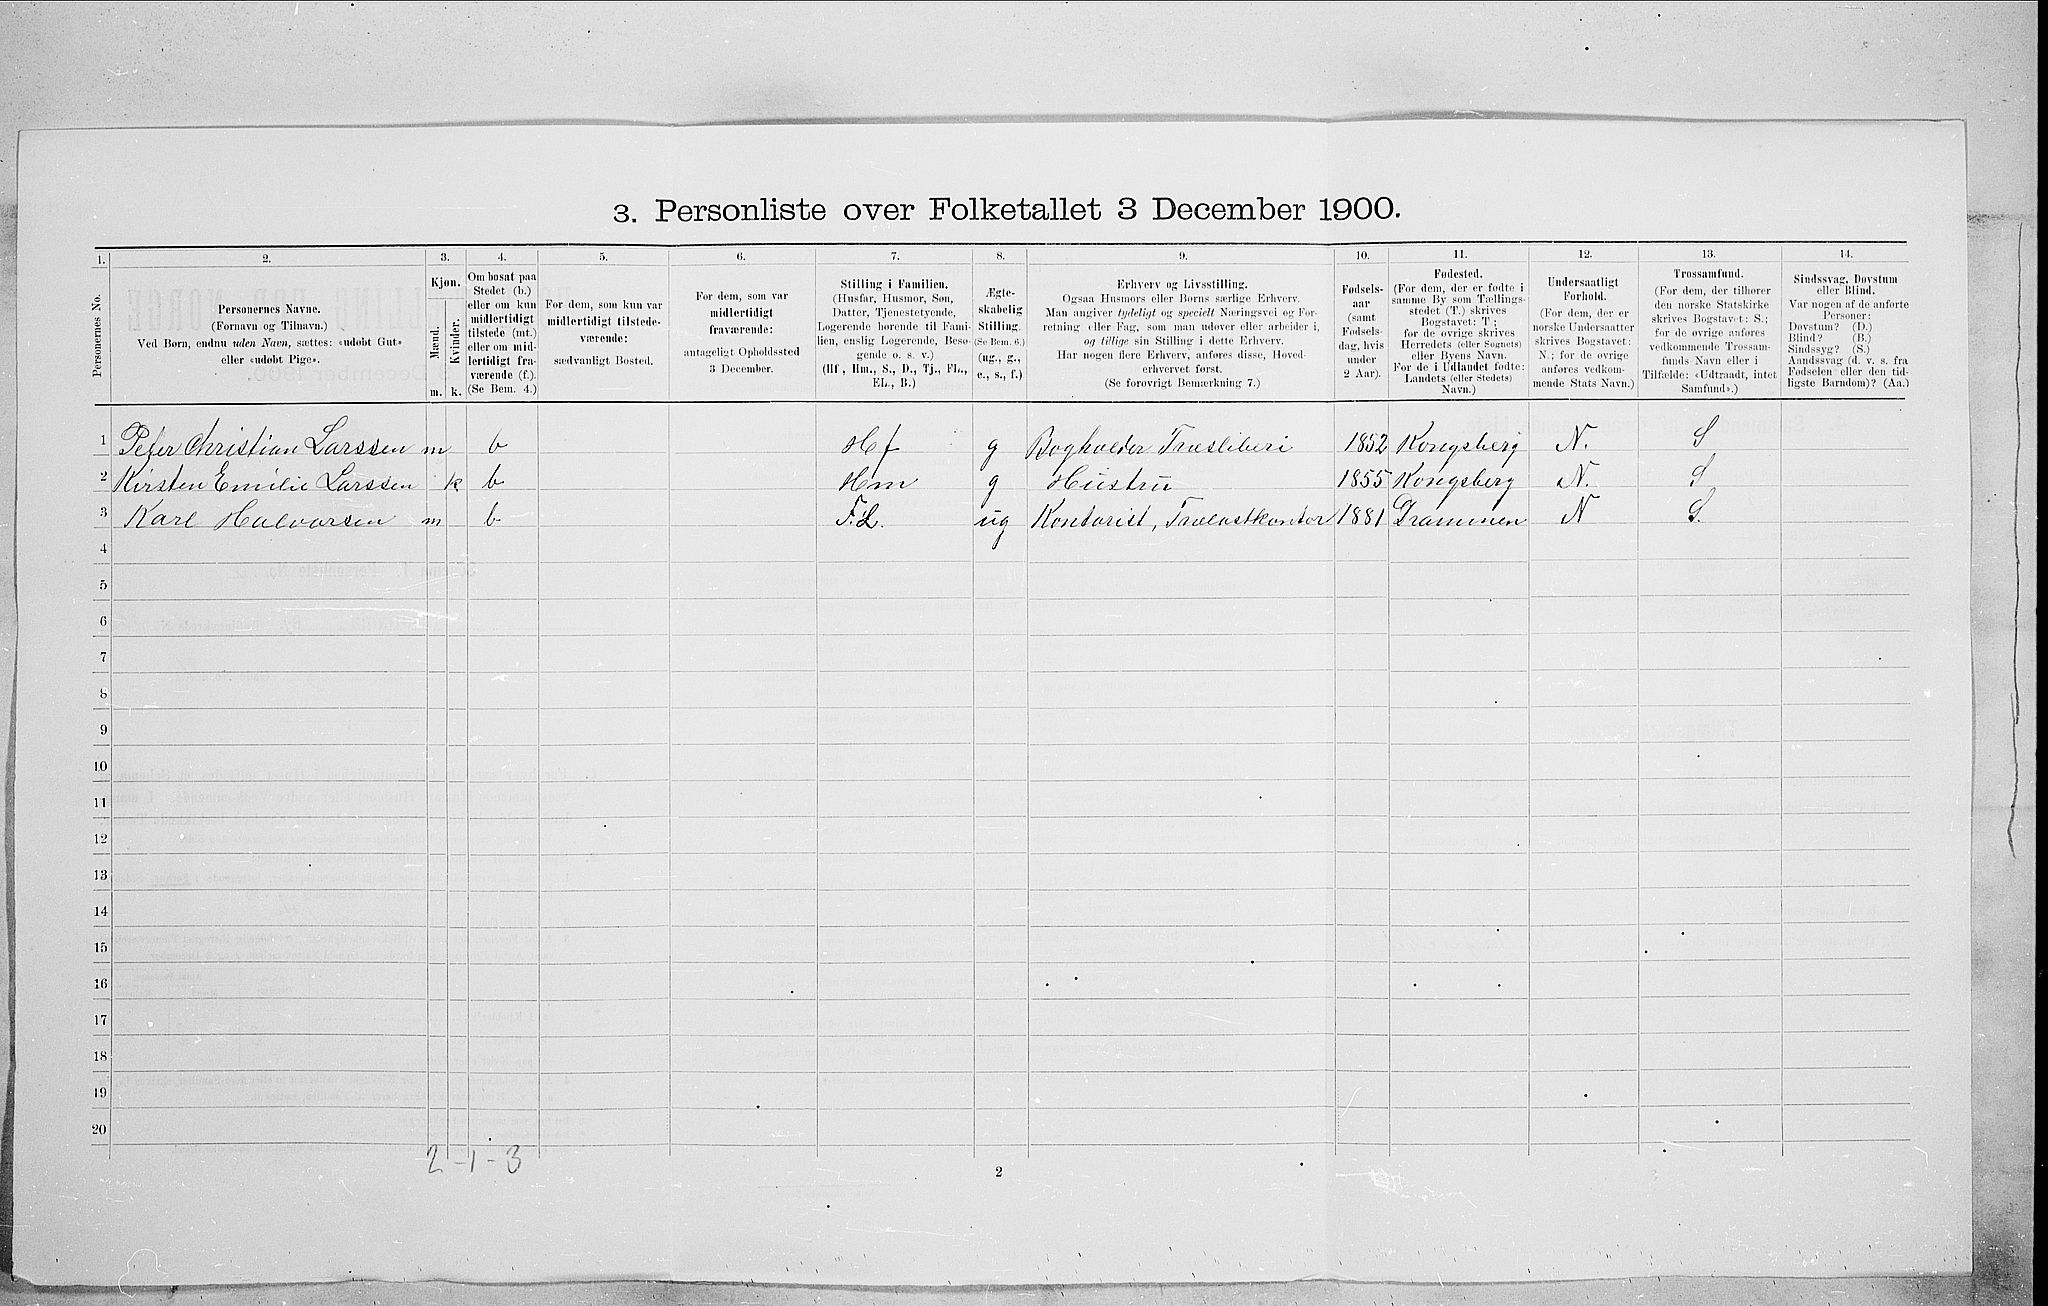 3. Personliste over Folketallet 3 December 1900.
1. 2. 3. 4. 5. 6. 7. 8. 9. 10. 11. 12. 13. 14.
Personernes No.
Personernes Navne.
(Fornavn og Tilnavn.)
Ved Børn, endnu uden Navn, sættes: «udøbt Gut»
eller «udøbt Pige».
Kjøn.
Mænd.
Kvinder.
m. k.
Om bosat paa
Stedet (b.)
eller om kun
midlertidigt
tilstede (mt.)
eller om mid-
lertidigt fra-
værende (f.).
(Se Bem. 4.)
For dem, som kun var
midlertidigt tilstede-
værende:
sædvanligt Bosted.
For dem, som var
midlertidigt
fraværende:
antageligt Opholdssted
3 December.
Stilling i Familien.
(Husfar, Husmor, Søn,
Datter, Tjenestetyende,
Logerende hørende til Fami-
lien, enslig Logerende, Besø-
gende o. s. v.)
(Hf, Hm., S., D., Tj., FL.,
EL., B.)
Ægte-
skabelig
Stilling.
(Se Bem. 6.)
(ug., g.,
e., s., f.)
Erhverv og Livsstilling.
Ogsaa Husmors eller Børns særlige Erhverv.
Man angiver tydeligt og specielt Næringsvei og For-
retning eller Fag, som man udøver eller arbeider i,
og tillige sin Stilling i dette Erhverv.
Har nogen flere Erhverv, anføres disse, Hoved-
erhvervet først.
(Se forøvrigt Bemærkning 7.)
Fødsels-
aar
(samt
Fødsels-
dag, hvis
under
2 Aar).
Fødested.
(For dem, der er fødte i
samme By som Tællings-
stedet (T.) skrives
Bogstavet: T;
for de øvrige skrives
Herredets (eller Sognets)
eller Byens Navn.
For de i Udlandet fødte:
Landets (eller Stedets)
Navn.)
Undersaatligt
Forhold.
(For dem, der er
norske Undersaatter
skrives Bogstavet:
N.; for de øvrige
anføres vedkom-
mende Stats Navn.)
Trossamfund.
(For dem, der tilhører
den norske Statskirke
skrives Bogstavet: S.;
for de øvrige anføres
vedkommende Trossam-
funds Navn eller i
Tilfælde: «Udtraadt, intet
Samfund».)
Sindssvag, Døvstum
eller Blind.
Var nogen af de anførte
Personer:
Døvstum? (D.)
Blind? (B.)
Sindssyg? (S.)
Aandssvag (d. v. s. fra
Fødselen eller den tid-
ligste Barndom)? (Aa.)
1 Peter Christian Larssen m b Hf g Bogholder Træsliberi 1852 Kongsberg N. S
2 Kirsten Emilie Larssen k b Hm g Hustru 1855 Kongsberg N. S
3 Karl Halvorsen m b F.L. ug Kontorist, Trælastkontor 1881 Drammen N S.
4
5
6
7
8
9
10
11
12
13
14
15
16
17
18
19
20
2-1-3
2